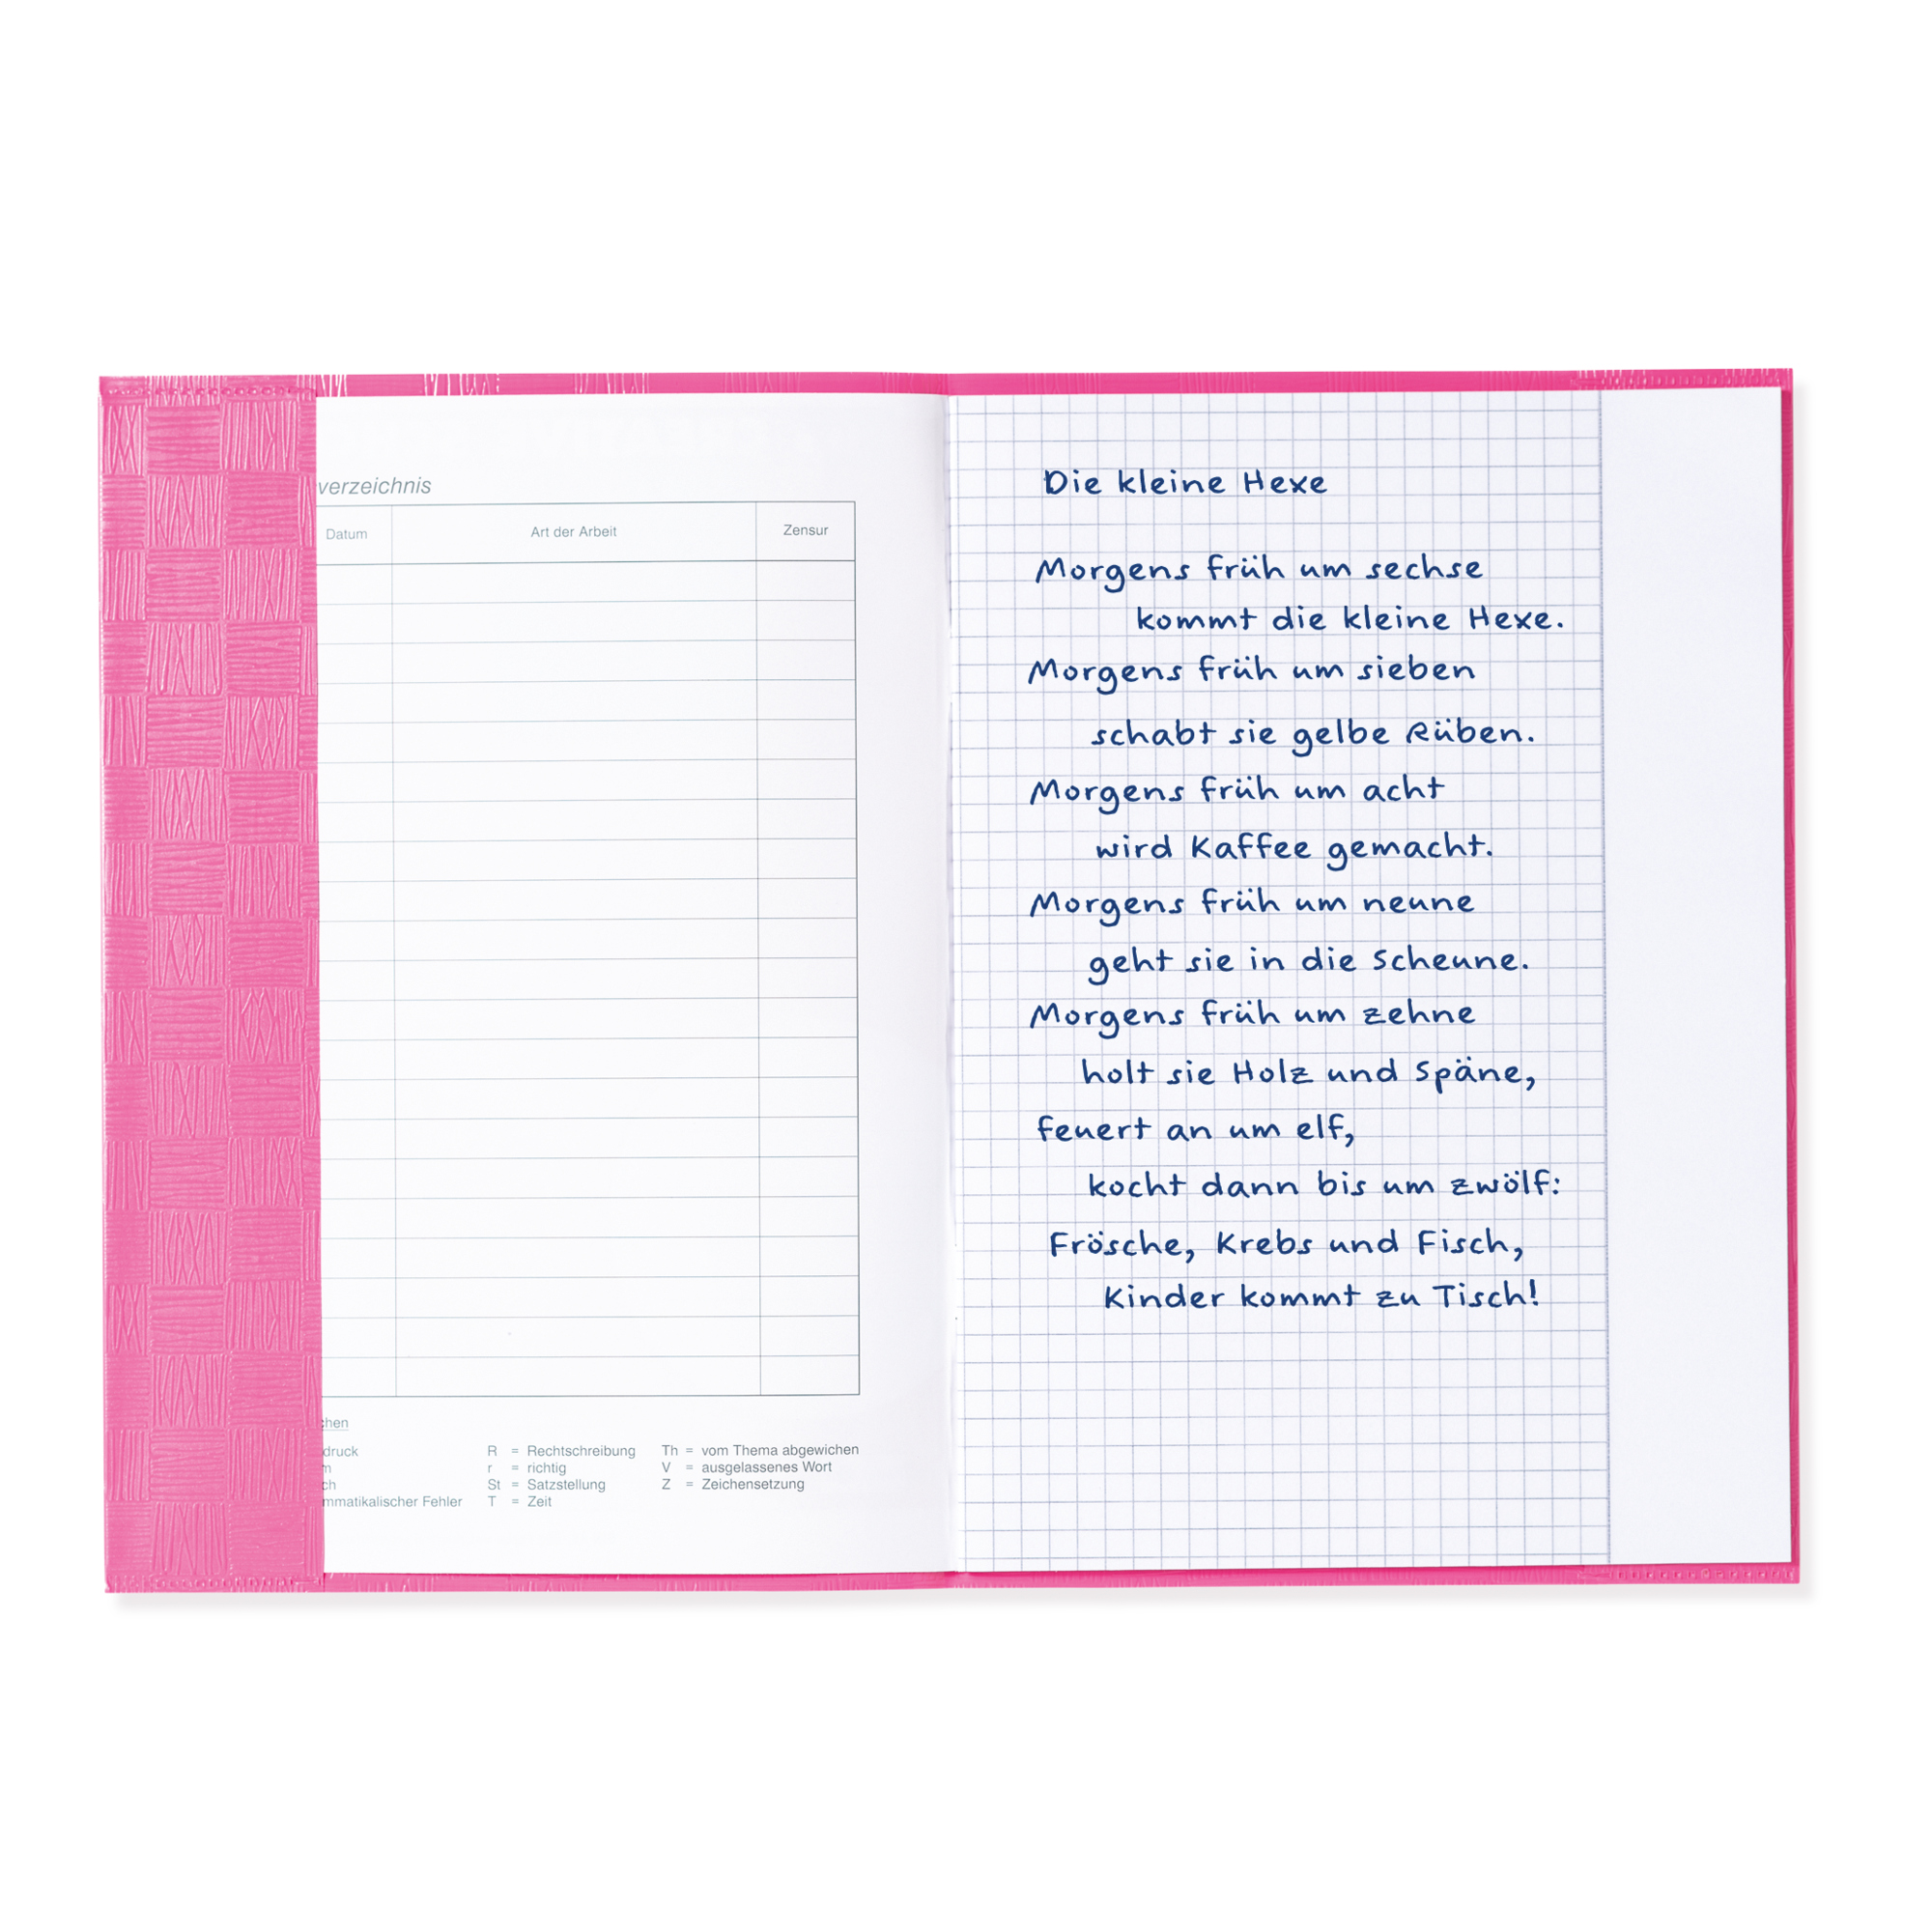 verzeichnis
Datum Art der Arbeit Zensur
R = Rechtschreibung Th = vom Thema abgewichen
r = richtig V = ausgelassenes Wort
St = Satzstellung Z = Zeichensetzung
mmatikalischer Fehler T = Zeit
Die kleine Hexe
Morgens früh um sechse
kommt die kleine Hexe.
Morgens früh um sieben
schabt sie gelbe Rüben.
Morgens früh um acht
wird Kaffee gemacht.
Morgens früh um neune
geht sie in die Scheune.
Morgens früh um zehne
holt sie Holz und Späne,
feuert an um elf,
kocht dann bis um zwölf:
Frösche, Krebs und Fisch,
Kinder kommt zu Tisch!